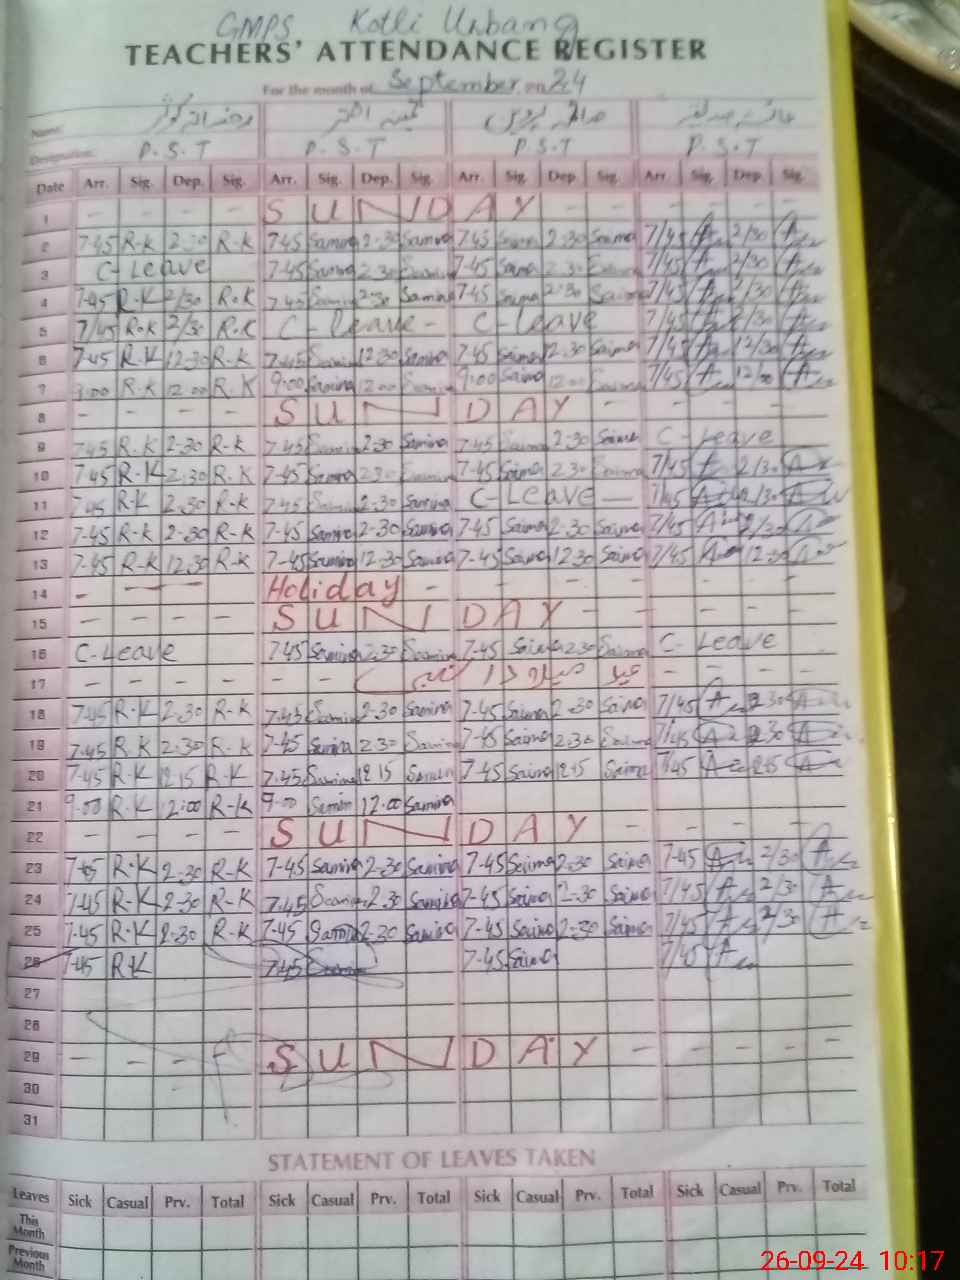 GMPS Kotli Urbang
TEACHERS' ATTENDANCE REGISTER
For the month of September 24
Name:
Designation: P.S.T P.S.T P.S.T P.S.T
Date Arr. Sig. Dep. Sig. Arr. Sig. Dep. Sig. Arr. Sig. Dep. Sig. Arr. Sig. Dep. Sig.
1 - - - - SUNDAY - - - - -
2 7-45 R-K 2-30 R-K 7-45 Samina 2-30 Samina 7-45 Saima 2-30 Saima 7/45 2/30
3 C-Leave 7-45 Samina 2-30 Samina 7-45 Saima 2-30 Saima 7/45 2/30
4 7-45 R-K 2/30 R.K 7-45 Samina 2-30 Samina 7-45 Saima 2-30 Saima 7/45 2/30
5 7/45 R.K 2/30 R.K C-leave- C-leave 7/45 2/30
6 7-45 R.K 12-30 R-K 7-45 Samina 12-30 Samina 7-45 Saima 12-30 Saima 7/45 12/30
7 9:00 R-K 12 00 R.K 9:00 Samina 12 00 Samina 9:00 Saima 12 00 Saima 7/45
8 - - - - SUNDAY - - - - -
9 7-45 R-K 2-30 R-K 7-45 Samina 2-30 Samina 7-45 Saima 2-30 Saima C-Leave
10 7-45 R-K 2-30 R.K 7-45 Samina 2-30 Samina 7-45 Saima 2-30 Saima 7/45 2/30
11 7-45 R-K 2-30 R-K 7-45 Samina 2-30 Samina C-Leave - 7/45 2/30
12 7-45 R-K 2-30 R-K 7-45 Samina 2-30 Samina 7-45 Saima 2-30 Saima 7/45 2/30
13 7-45 R-K 12-30 R-K 7-45 Samina 12-30 Samina 7-45 Saima 12-30 Saima 7/45 12-30
14 - - - Holiday - - - - - - -
15 - - - - SUNDAY - - - - -
16 C-Leave 7-45 Samina 2-30 Samina 7-45 Saima 2-30 Saima C-Leave
17 - - - - - - عید میلاد النبی - - - -
18 7-45 R-K 2-30 R-K 7-45 Samina 2-30 Samina 7-45 Saima 2-30 Saima 7/45 2-30
19 7-45 R-K 2-30 R-K 7-45 Samina 2-30 Samina 7-45 Saima 2-30 Saima 7/45 2-30
20 7-45 R-K 12 15 R-K 7-45 Samina 12 15 Samina 7-45 Saima 12 15 Saima 7/45
21 9-00 R-K 12:00 R-K 9-00 Samina 12:00 Samina
22 - - - - SUNDAY - - - - -
23 7-45 R-K 2-30 R-K 7-45 Samina 2-30 Samina 7-45 Saima 2-30 Saima 7-45 2/30
24 7-45 R-K 2-30 R-K 7-45 Samina 2-30 Samina 7-45 Saima 2-30 Saima 7/45 2/30
25 7-45 R-K 2-30 R-K 7-45 Samina 2-30 Samina 7-45 Saima 2-30 Saima 7/45 2/30
26 7-45 R-K 7-45 Samina 7-45 Saima 7/45
27
28
29 - - - - SUNDAY - - - - -
30
31
STATEMENT OF LEAVES TAKEN
Leaves Sick Casual Prv. Total Sick Casual Prv. Total Sick Casual Prv. Total Sick Casual Prv. Total
This Month
Previous Month
26-09-24 10:17